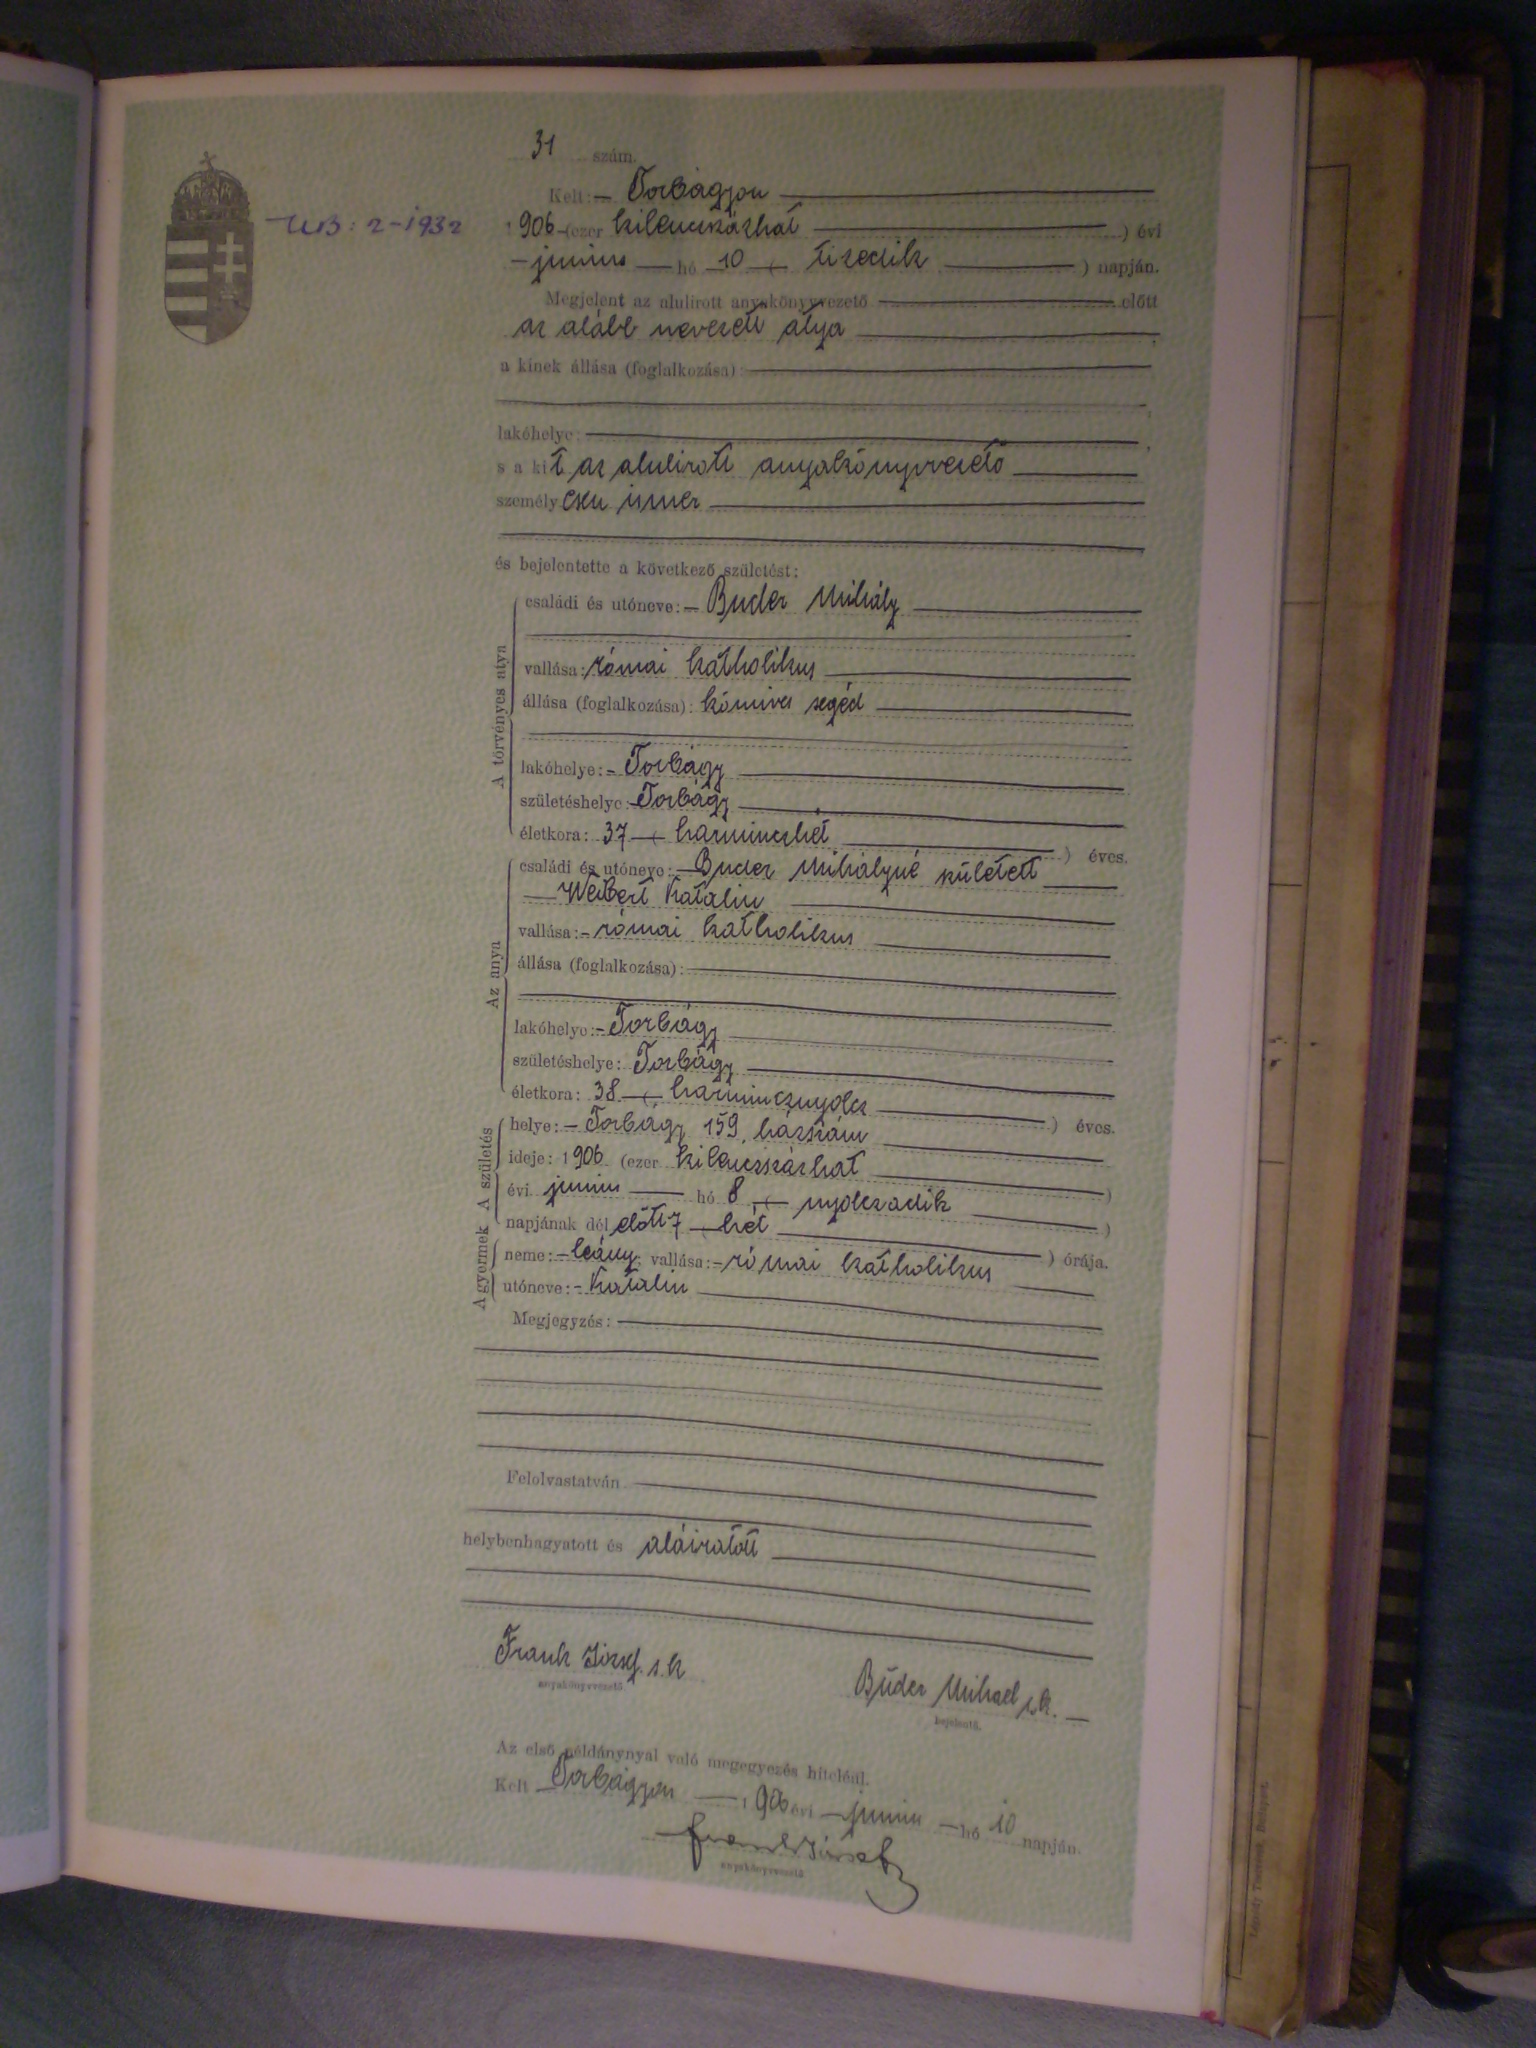 31 szám.
Kelt: Torbágyon
UB: 2-1932
1906 (ezer kilenczszázhat) évi
junius hó 10 (tizedik) napján.
Megjelent az alulirott anyakönyvvezető előtt
az alább nevezett atya
a kinek állása (foglalkozása):
lakóhelye:
s a kit az alulirott anyakönyvvezető
személyesen ismer
és bejelentette a következő születést:
A törvényes atya
családi és utóneve: Buder Mihály
vallása: római katholikus
állása (foglalkozása): kőmives segéd
lakóhelye: Torbágy
születéshelye: Torbágy
életkora: 37 (harminczhét) éves.
Az anya
családi és utóneve: Buder Mihályné született
Weibert Katalin
vallása: római katholikus
állása (foglalkozása):
lakóhelye: Torbágy
születéshelye: Torbágy
életkora: 38 (harmincznyolcz) éves.
A születés
helye: Torbágy 159. házszám
ideje: 1906 (ezer kilenczszázhat)
évi junius hó 8 (nyolczadik)
napjának dél előtt 7 (hét) órája.
A gyermek
neme: leány; vallása: római katholikus
utóneve: Katalin
Megjegyzés:
Felolvastatván
helybenhagyatott és aláiratott
Frank József s. k
anyakönyvvezető.
Búder Mihael s.k.
bejelentő.
Az első példánynyal való megegyezés hiteléül.
Kelt Torbágyon 1906 évi junius hó 10 napján.
Frank József
anyakönyvvezető